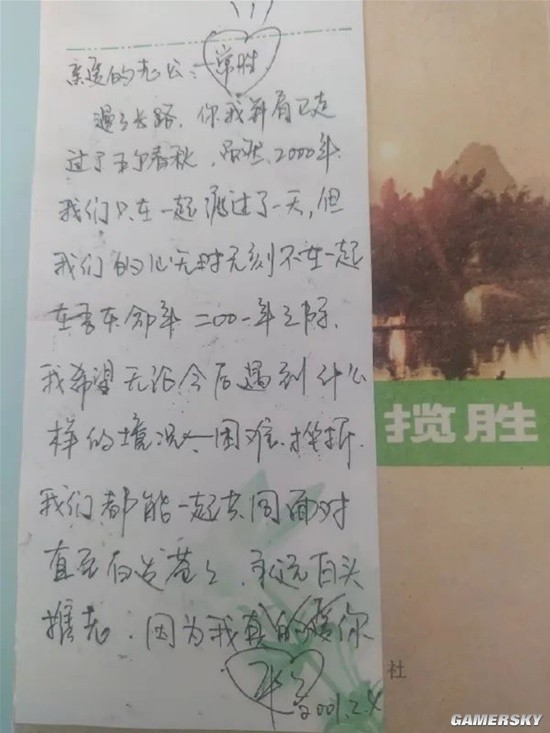 亲爱的老公：常胜
漫々长路，你我并肩已走
过了五个春秋，虽然2000年
我们只在一起度过了一天，但
我们的心无时无刻不在一起
在喜东部年二〇〇一年之际，
我希望无论今后遇到什么
样的境况、困难、挫折，
我们都能一起共同面对
直至白发苍々，永远白头
携老，因为我真的爱你
2001.2.4
揽胜
社
GAMERSKY